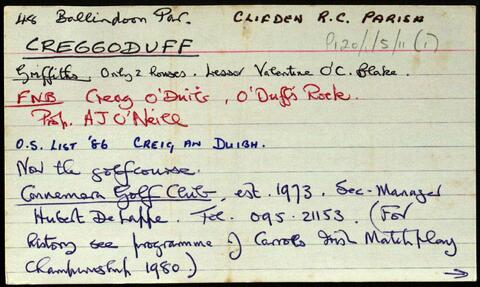 48 Ballindoon Par. CLIFDEN R.C. PARISH
P120/1/5/11 (1)
CREGGODUFF
Griffiths Only 2 houses. Lessor Valentine O'C. Blake.
FNB Creag O'Duif's, O'Duff's Rock.
Prop. AJ O'Neill
O.S. LIST '86 CREIG AN DUIBH.
Now the golfcourse.
Connemara Golf Club, est. 1973. Sec-Manager
Hubert De Lappe. Tel. 095. 21153. (For
history see programme of Carrolls Irish Matchplay
Championship 1980.)
→